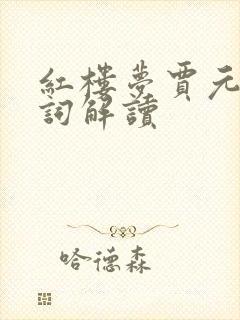 紅樓夢賈元
詞解讀
哈德森